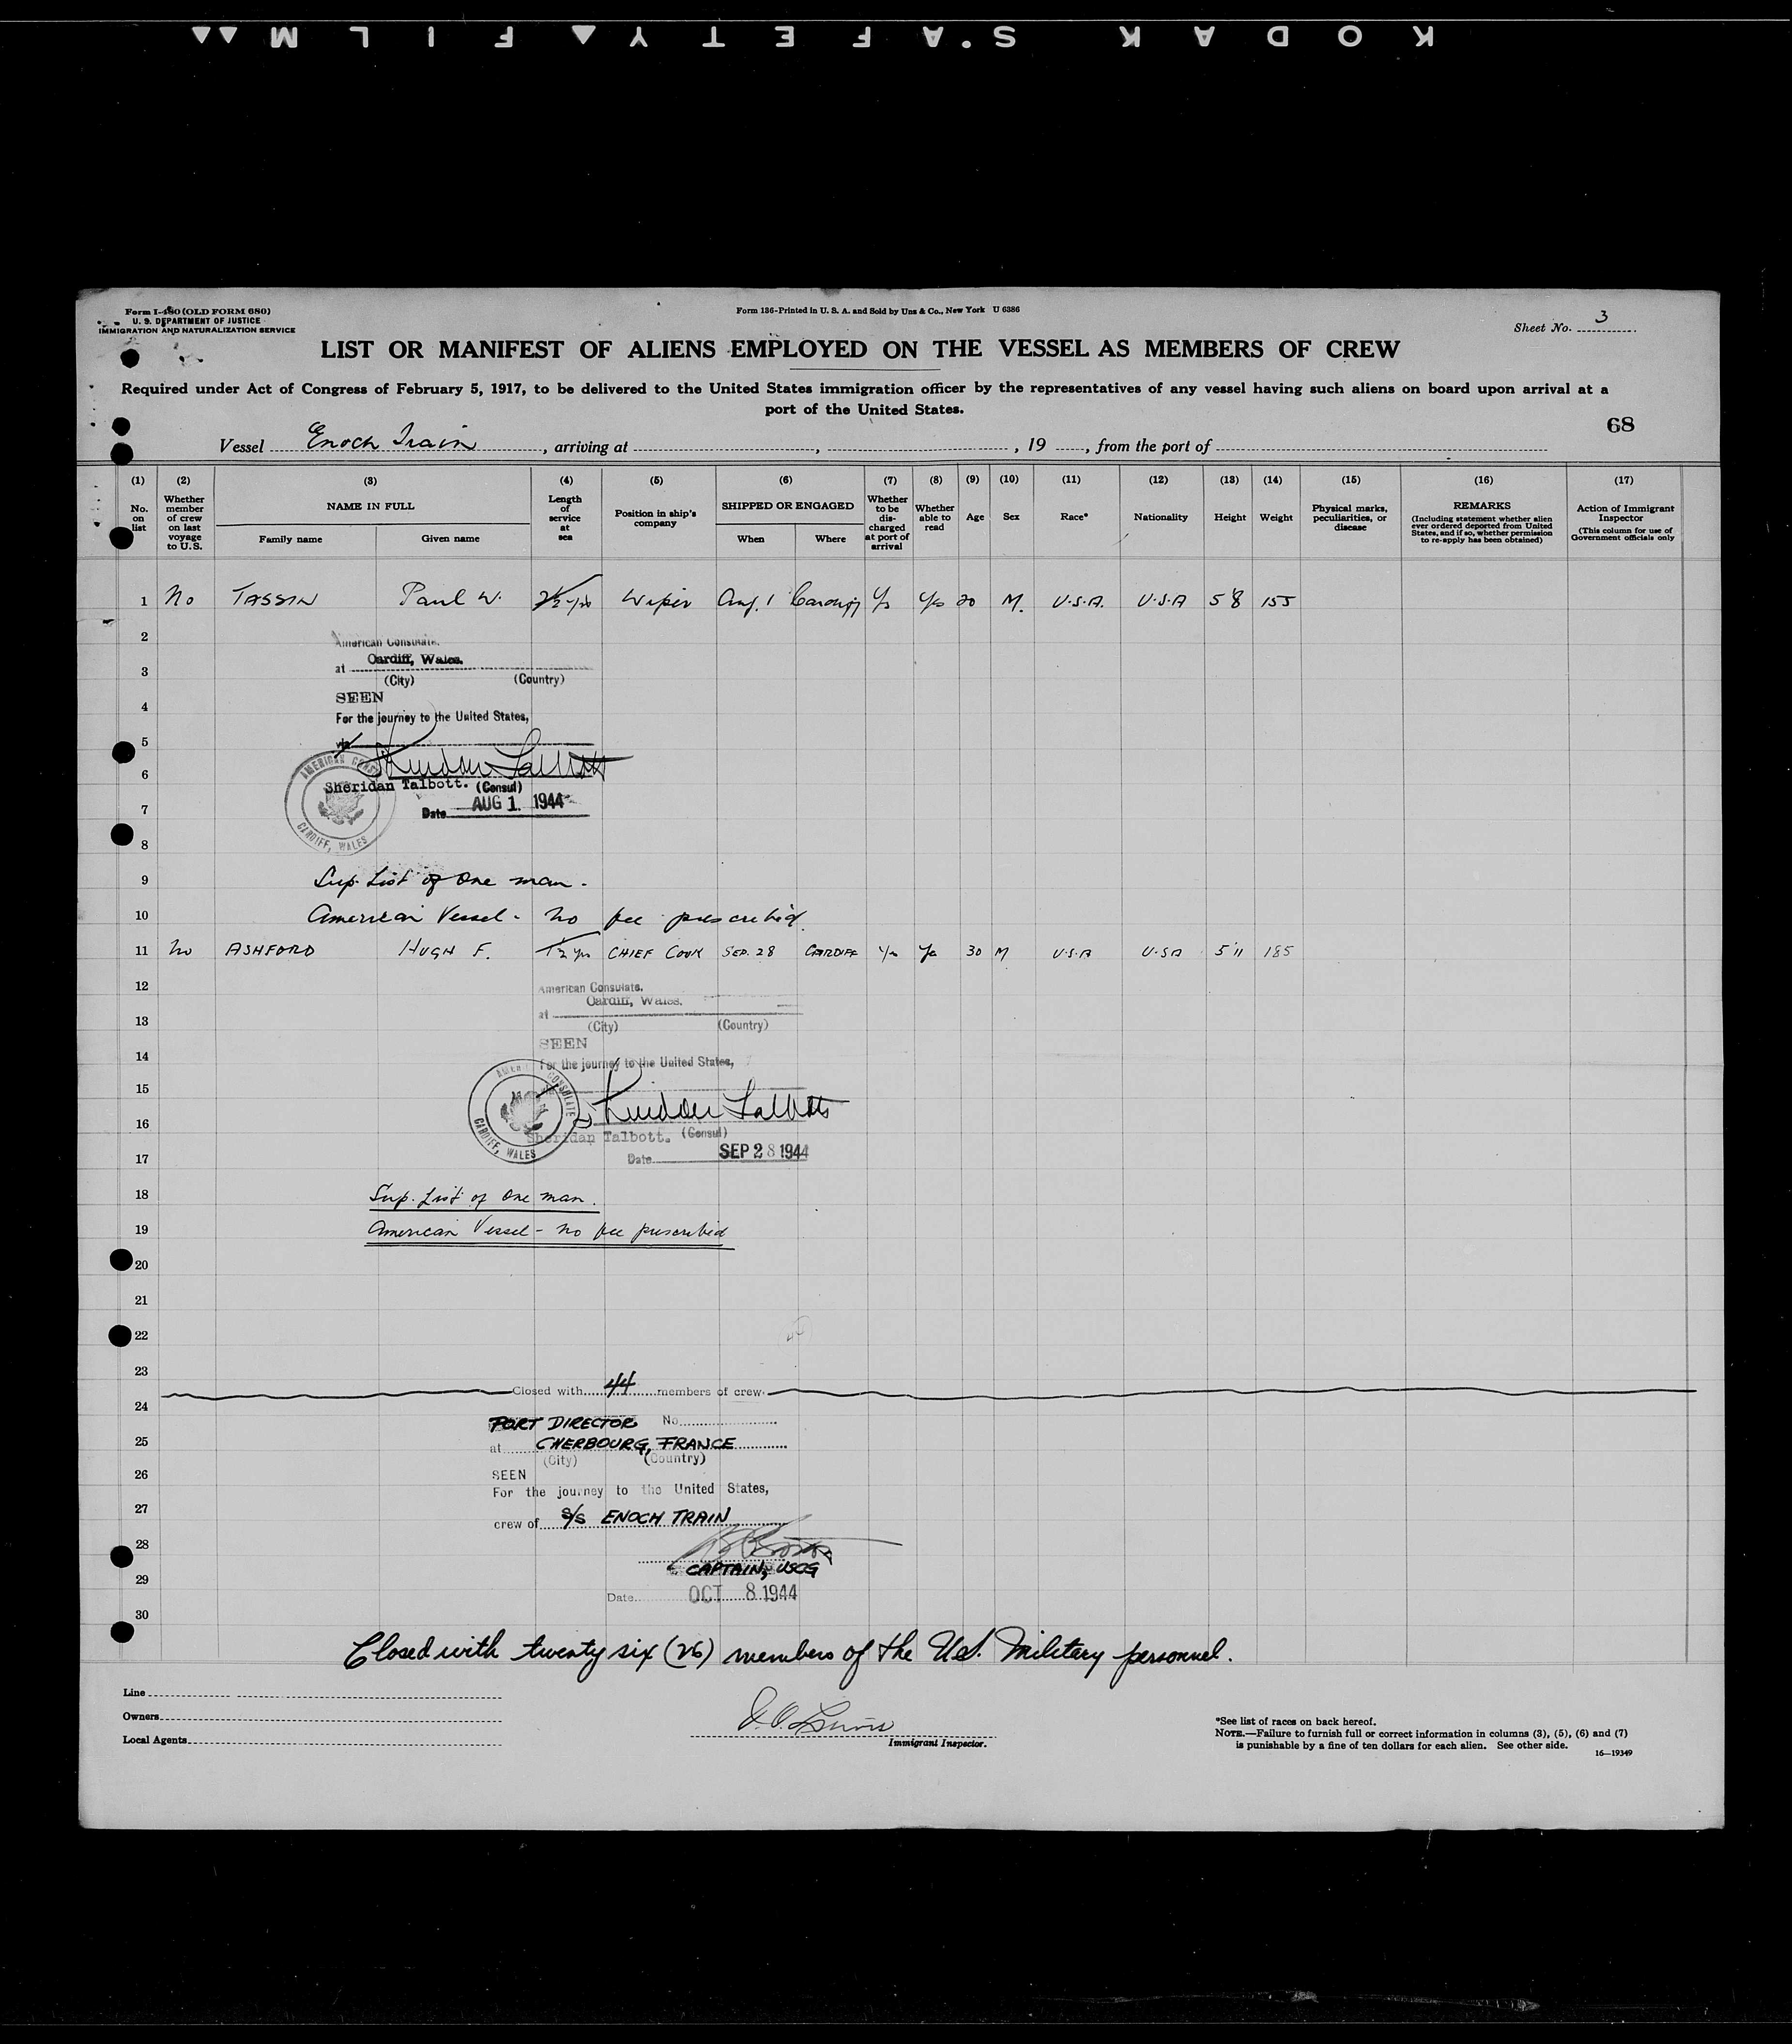 KODAK SAFETY FILM
Form I-480 (OLD FORM 680)
U. S. DEPARTMENT OF JUSTICE
IMMIGRATION AND NATURALIZATION SERVICE
Form 136-Printed in U. S. A. and Sold by Unz & Co., New York U 6386
Sheet No. 3
LIST OR MANIFEST OF ALIENS EMPLOYED ON THE VESSEL AS MEMBERS OF CREW
Required under Act of Congress of February 5, 1917, to be delivered to the United States immigration officer by the representatives of any vessel having such aliens on board upon arrival at a
port of the United States.
68
Vessel Enoch Train, arriving at , , 19 , from the port of
(1) (2) (3) (4) (5) (6) (7) (8) (9) (10) (11) (12) (13) (14) (15) (16) (17)
No. on list
Whether member of crew on last voyage to U.S.
NAME IN FULL
Family name Given name
Length of service at sea
Position in ship's company
SHIPPED OR ENGAGED
When Where
Whether to be discharged at port of arrival
Whether able to read
Age
Sex
Race*
Nationality
Height
Weight
Physical marks, peculiarities, or disease
REMARKS
(Including statement whether alien ever ordered deported from United States, and if so, whether permission to re-apply has been obtained)
Action of Immigrant Inspector
(This column for use of Government officials only
1 No TASSIN Paul W. Wiper Aug. 1 Yes 20 M. U.S.A. U.S.A 5 8 155
2 American Consulate.
3 at Cardiff, Wales.
(City) (Country)
4 SEEN
For the journey to the United States,
5 via
6 Sheridan Talbott
AMERICAN CONSULATE CARDIFF, WALES
Sheridan Talbott. (Consul)
7 Date AUG 1 1944
8
9 Sup. List of One man.
10 American Vessel - No fee prescribed.
11 No ASHFORD HUGH F. 1/2 yrs CHIEF COOK SEP. 28 CARDIFF Yes Yes 30 M U.S.A U.S.A 5'11 185
12 American Consulate.
Cardiff, Wales.
13 at
(City) (Country)
14 SEEN
For the journey to the United States,
15
AMERICAN CONSULATE CARDIFF, WALES
16 Sheridan Talbott
Sheridan Talbott. (Consul)
17 Date SEP 28 1944
18 Sup. List of One man.
19 American Vessel - No fee prescribed
20
21
22
23
Closed with 44 members of crew.
24 PORT DIRECTOR No.
25 at CHERBOURG, FRANCE
(City) (Country)
26 SEEN
For the journey to the United States,
27 crew of S/S ENOCH TRAIN
28
CAPTAIN, USCG
29 Date OCT 8 1944
30
Closed with twenty six (26) members of the U.S. Military personnel.
Line
Owners
Local Agents
Immigrant Inspector.
*See list of races on back hereof.
NOTE.—Failure to furnish full or correct information in columns (3), (5), (6) and (7)
is punishable by a fine of ten dollars for each alien. See other side.
16—19349